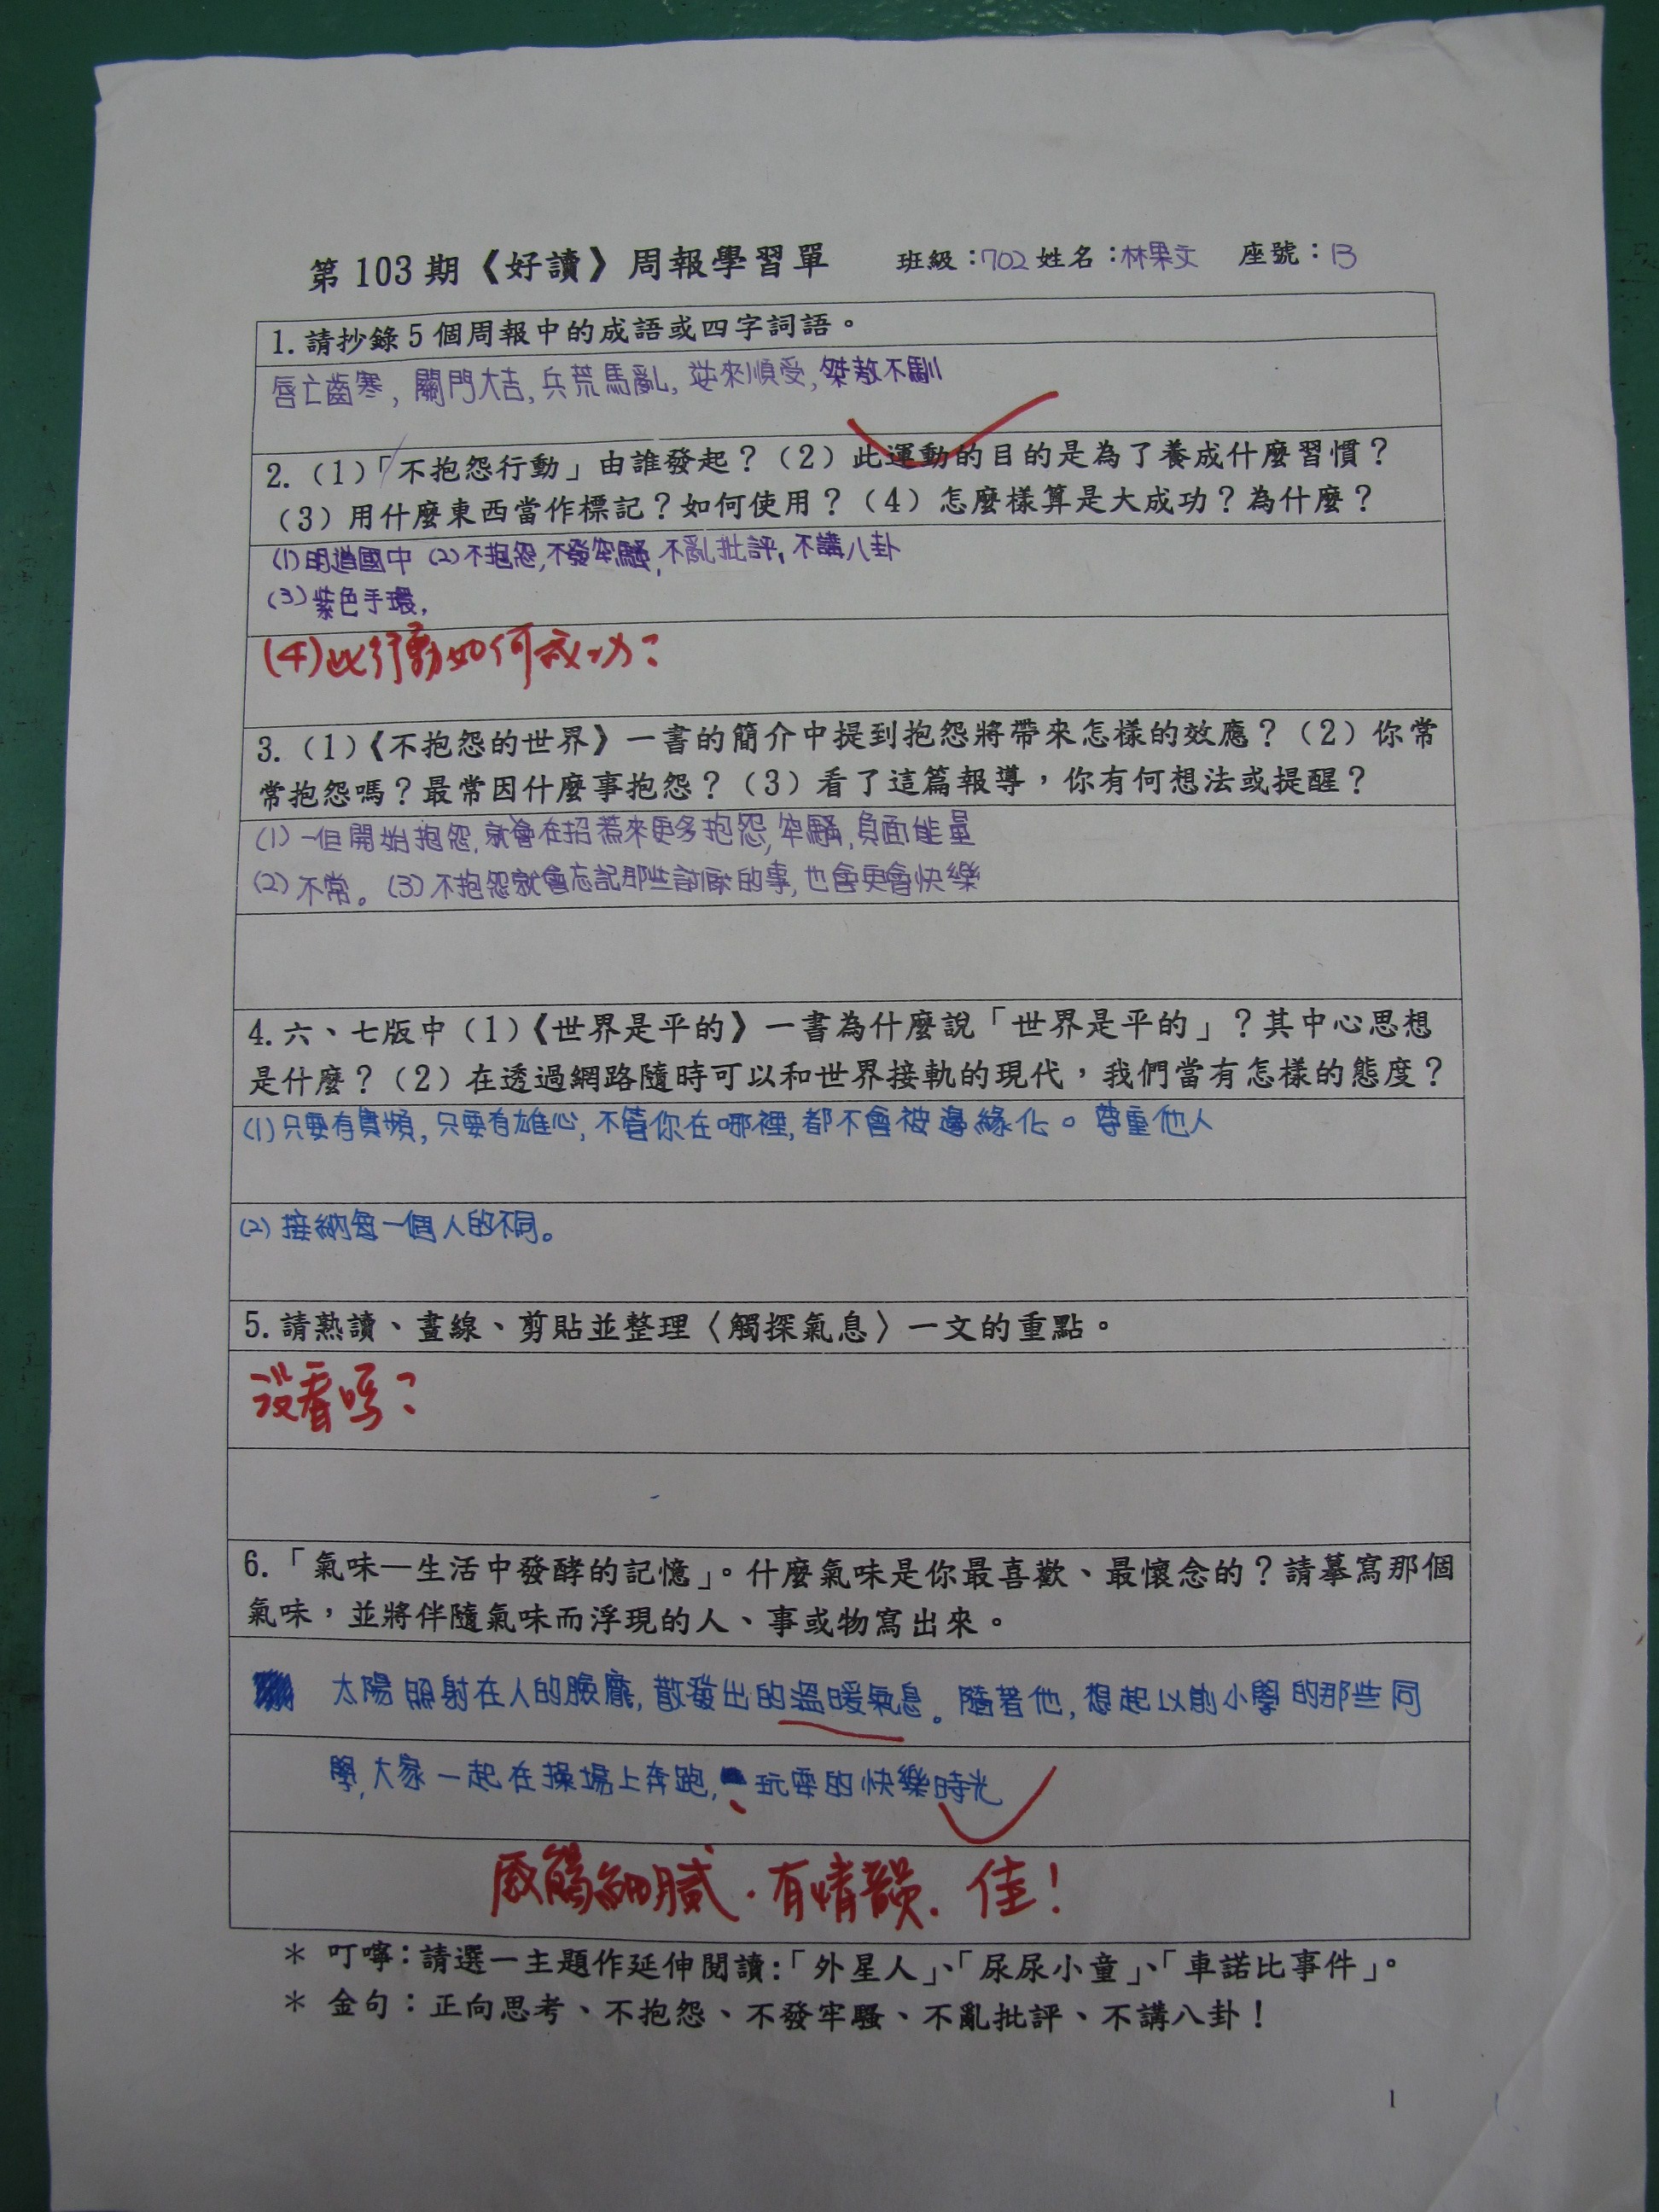 第103期《好讀》周報學習單 班級：702 姓名：林果文 座號：13
1.請抄錄5個周報中的成語或四字詞語。
唇亡齒寒, 關門大吉, 兵荒馬亂, 逆來順受, 桀敖不馴
2.（1）「不抱怨行動」由誰發起？（2）此運動的目的是為了養成什麼習慣？
（3）用什麼東西當作標記？如何使用？（4）怎麼樣算是大成功？為什麼？
(1)明道國中 (2)不抱怨,不發牢騷,不亂批評,不講八卦
(3)紫色手環,
(4)此行動如何成功？
3.（1）《不抱怨的世界》一書的簡介中提到抱怨將帶來怎樣的效應？（2）你常
常抱怨嗎？最常因什麼事抱怨？（3）看了這篇報導，你有何想法或提醒？
(1)一但開始抱怨,就會在招惹來更多抱怨,牢騷,負面能量
(2)不常。(3)不抱怨就會忘記那些討厭的事,也會更會快樂
4.六、七版中（1）《世界是平的》一書為什麼說「世界是平的」？其中心思想
是什麼？（2）在透過網路隨時可以和世界接軌的現代，我們當有怎樣的態度？
(1)只要有寬頻,只要有雄心,不管你在哪裡,都不會被邊緣化。尊重他人
(2)接納每一個人的不同。
5.請熟讀、畫線、剪貼並整理〈觸探氣息〉一文的重點。
沒看嗎？
6.「氣味—生活中發酵的記憶」。什麼氣味是你最喜歡、最懷念的？請摹寫那個
氣味，並將伴隨氣味而浮現的人、事或物寫出來。
太陽照射在人的臉龐,散發出的溫暖氣息。隨著他,想起以前小學的那些同
學,大家一起在操場上奔跑,玩耍的快樂時光
感觸細膩.有情韻.佳!
＊ 叮嚀：請選一主題作延伸閱讀：「外星人」、「尿尿小童」、「車諾比事件」。
＊ 金句：正向思考、不抱怨、不發牢騷、不亂批評、不講八卦！
1